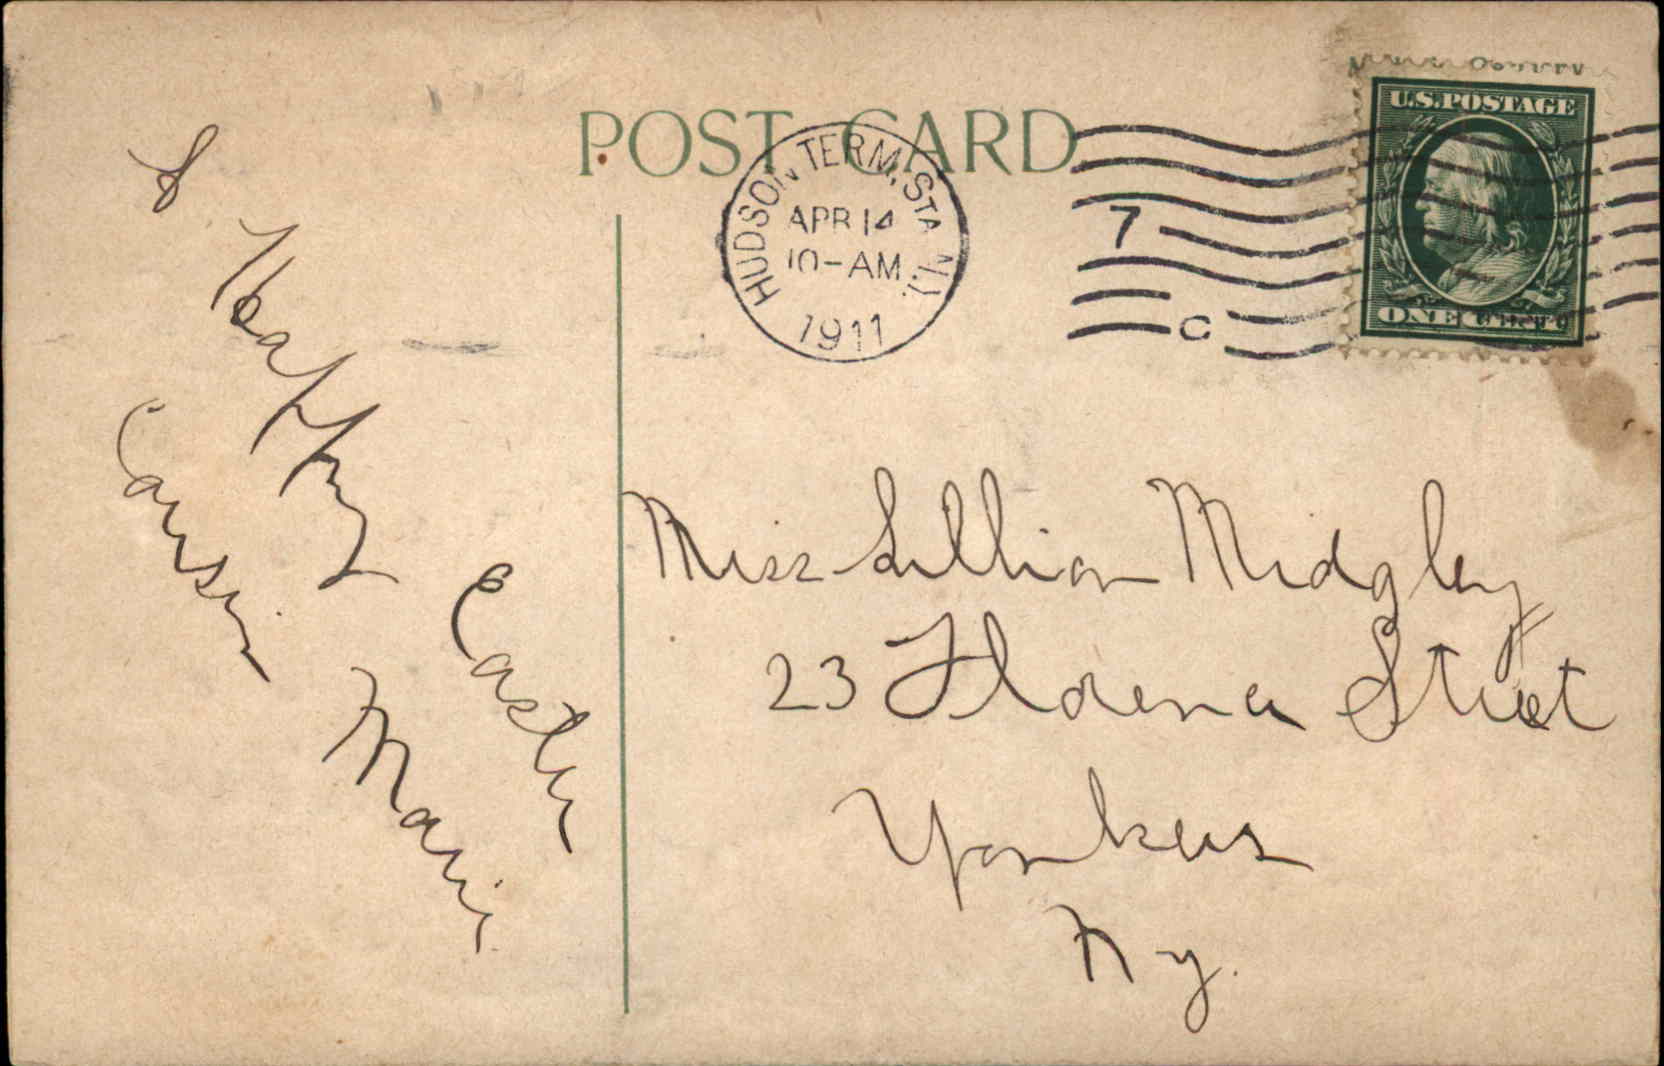 POST CARD
HUDSON TERM. STA. N.Y.
APR 14
10-AM
1911
7
C
U.S. POSTAGE
ONE CENT
A Happy Easter
Cousin Marie
Miss Lillian Midgley
23 Florence Street
Yonkers
Ny.